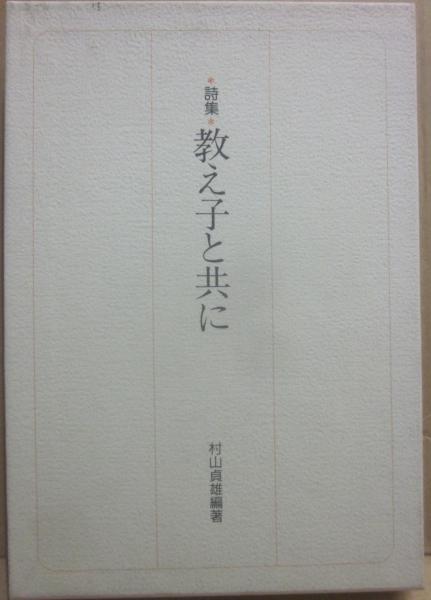 *詩集*
教え子と共に
村山貞雄編著